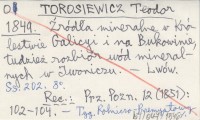 O1 TOROSIEWICZ Teodor
1849. Źródła mineralne w Kró-
lestwie Galicyi i na Bukowinie,
tudzież rozbiór wód mineral-
nych w Iwoniczu. — Lwów.
Ss. 202. 8°.
Rec.: Prz. Pozn. 12 (1851):
102-104. — Tyg. Rolniczo-Przemysłowy